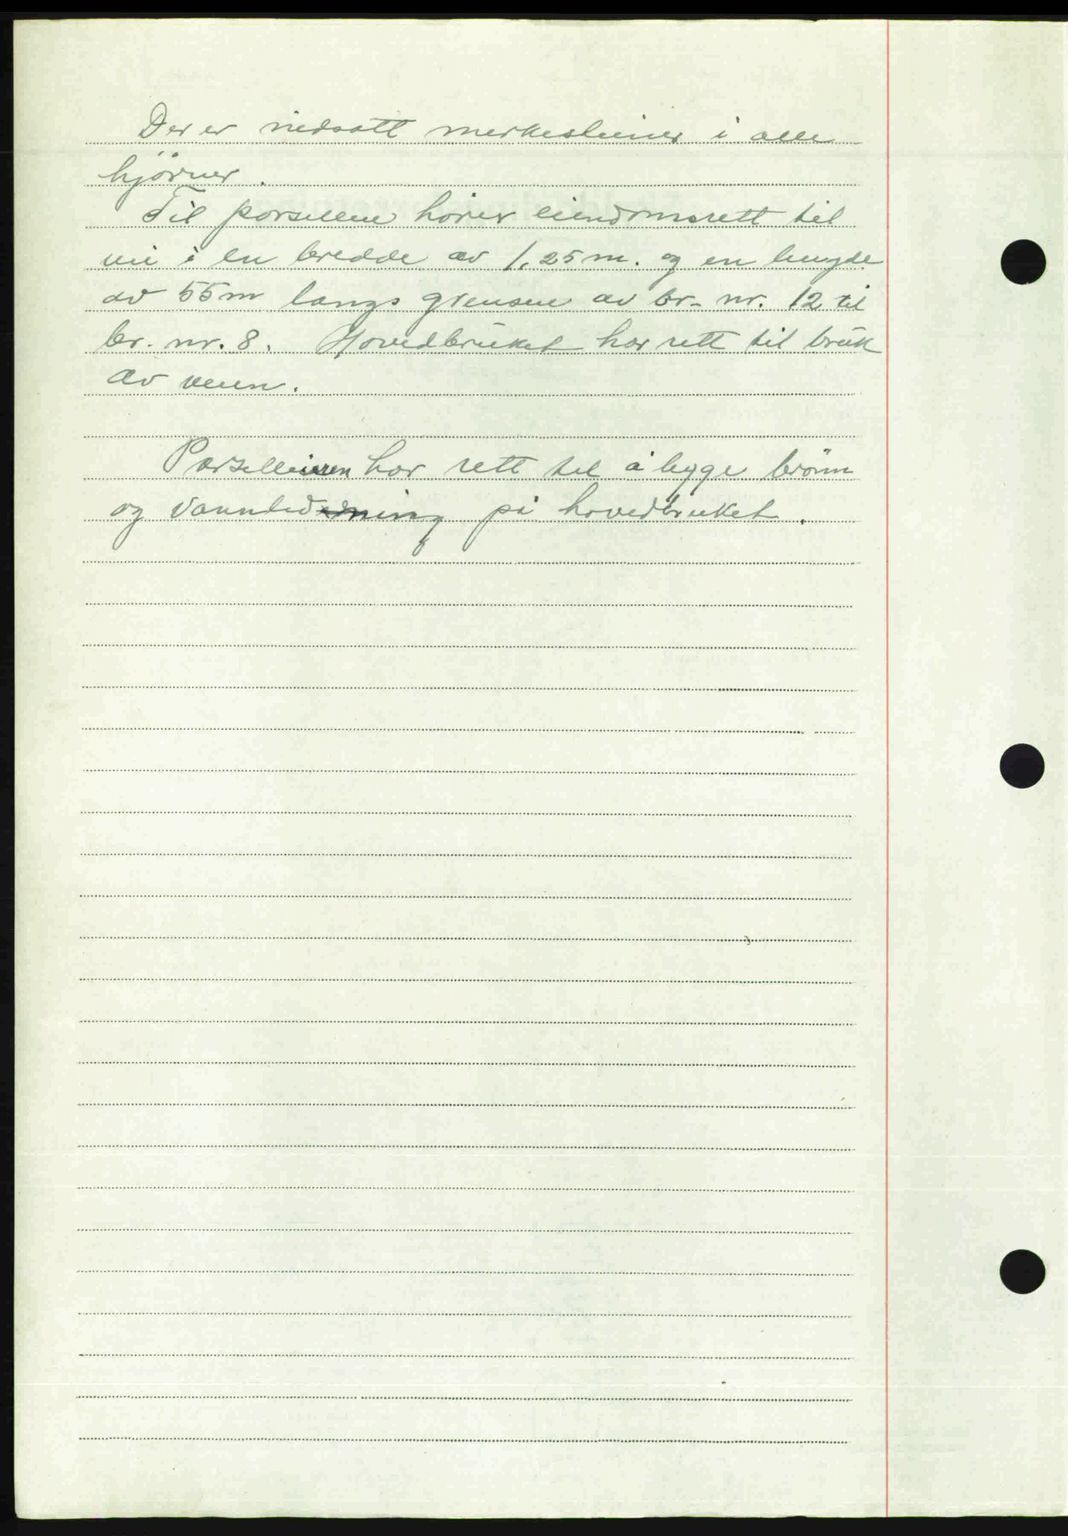 Der er nedsatt merkesteiner i alle
hjørner.
Til parsellen hører eiendomsrett til
vei i en bredde av 1,25 m. og en lengde
av 55 m langs grensen av br. nr. 12 til
br. nr. 8. Hovedbruket har rett til bruk
av veien.
Parselleieren har rett til å bygge brønn
og vannledning på hovedbruket.